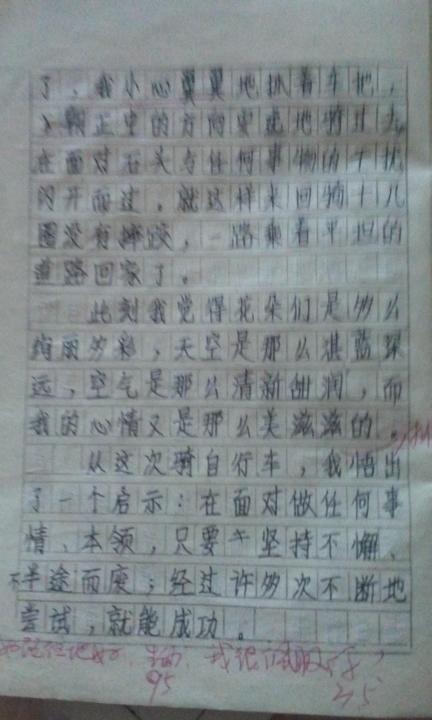 了，我小心翼翼地扒着车把，
朝正空的方向安稳地骑过去
在面对石头与任何事物的干扰
闪开而过，就这样来回骑十几
圈没有摔跤，一路乘着平坦的
道路回家了。
此刻我觉得花朵们是多么
绚丽多彩，天空是那么湛蓝深
远，空气是那么清新甜润，而
我的心情又是那么美滋滋的。
从这次骑自行车，我悟出
了一个启示：在面对做任何事
情、本领，只要坚持不懈、
不半途而废；经过许多次不断地
尝试，就能成功。
95